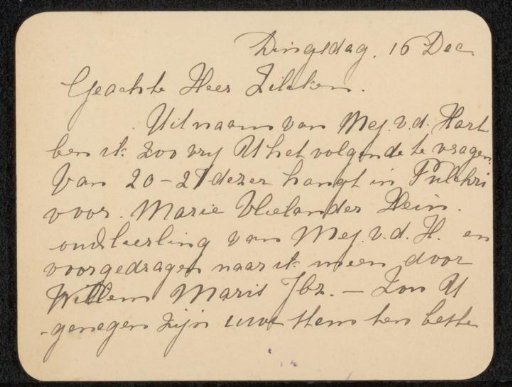 Dingsdag, 16 Dec
Geachte Heer Zilcken.
Uit naam van Mej. v. d. Hart
ben ik zoo vrij U het volgende te vragen
Van 20-27 dezer hangt in Pulchri
voor. Marie Vlielander Hein.
oudleerling van Mej. v. d. H. en
voorgedragen naar ik meen door
Willem Maris Jbz. — Zou U
genegen zijn uwe stem ten beste